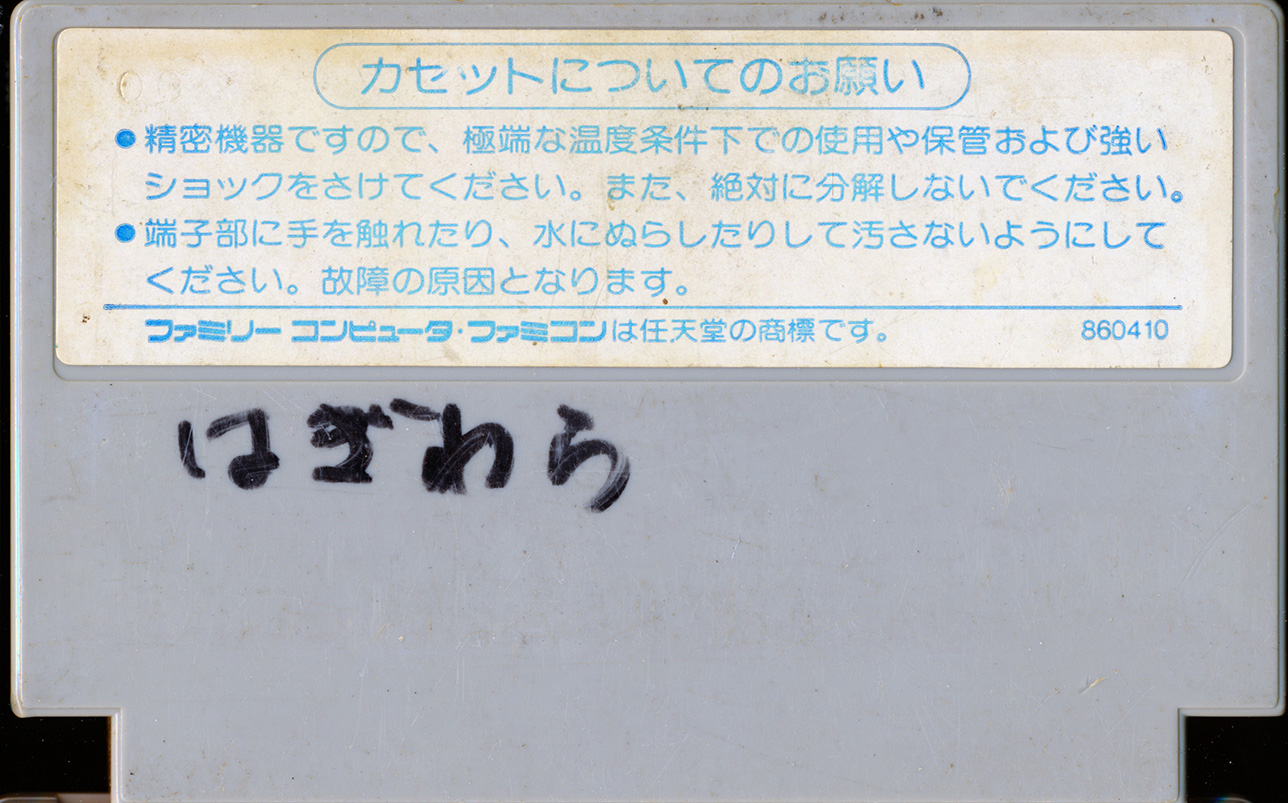 カセットについてのお願い
●精密機器ですので、極端な温度条件下での使用や保管および強い
ショックをさけてください。また、絶対に分解しないでください。
●端子部に手を触れたり、水にぬらしたりして汚さないようにして
ください。故障の原因となります。
ファミリー コンピュータ・ファミコンは任天堂の商標です。 860410
はぎわら